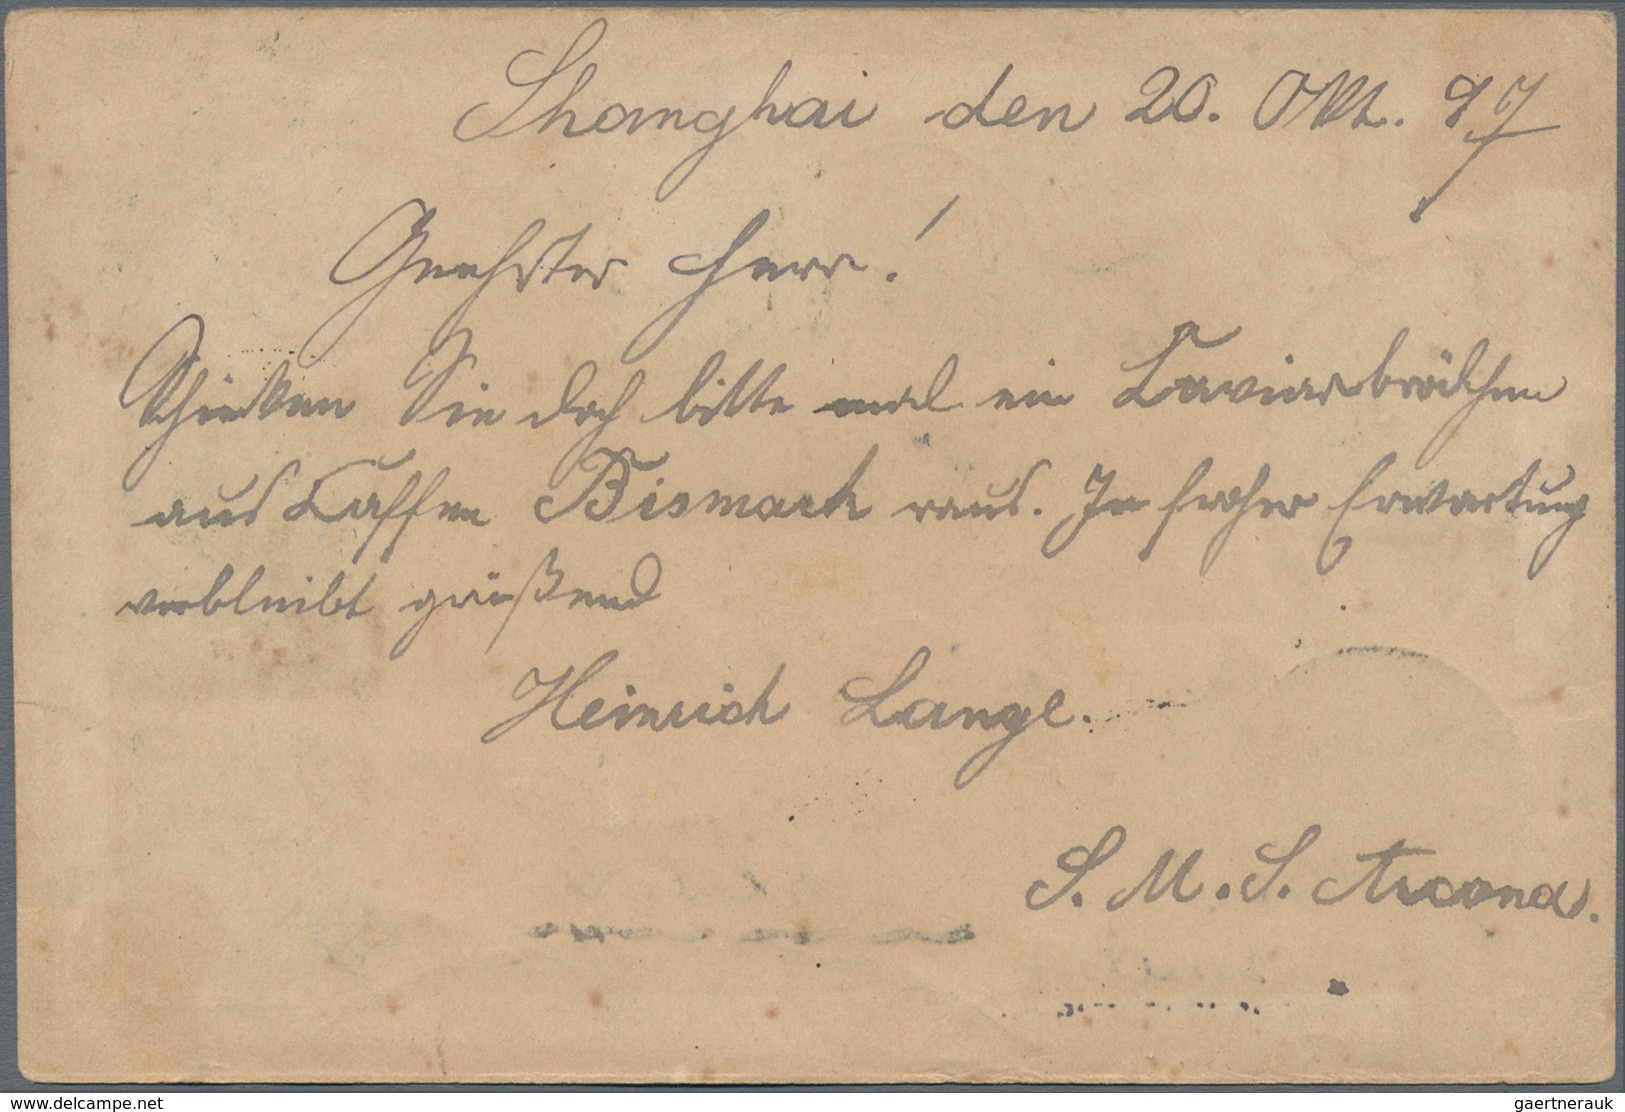 Shanghai den 20. Okt. 97
Geehrter Herr!
Schicken Sie doch bitte mal ein Caviarbrödchen
aus Caffee Bismark raus. In froher Erwartung
verbleibt grüßend
Heinrich Lange.
S. M. S. Arcona.
www.delcampe.net
gaertnerauk